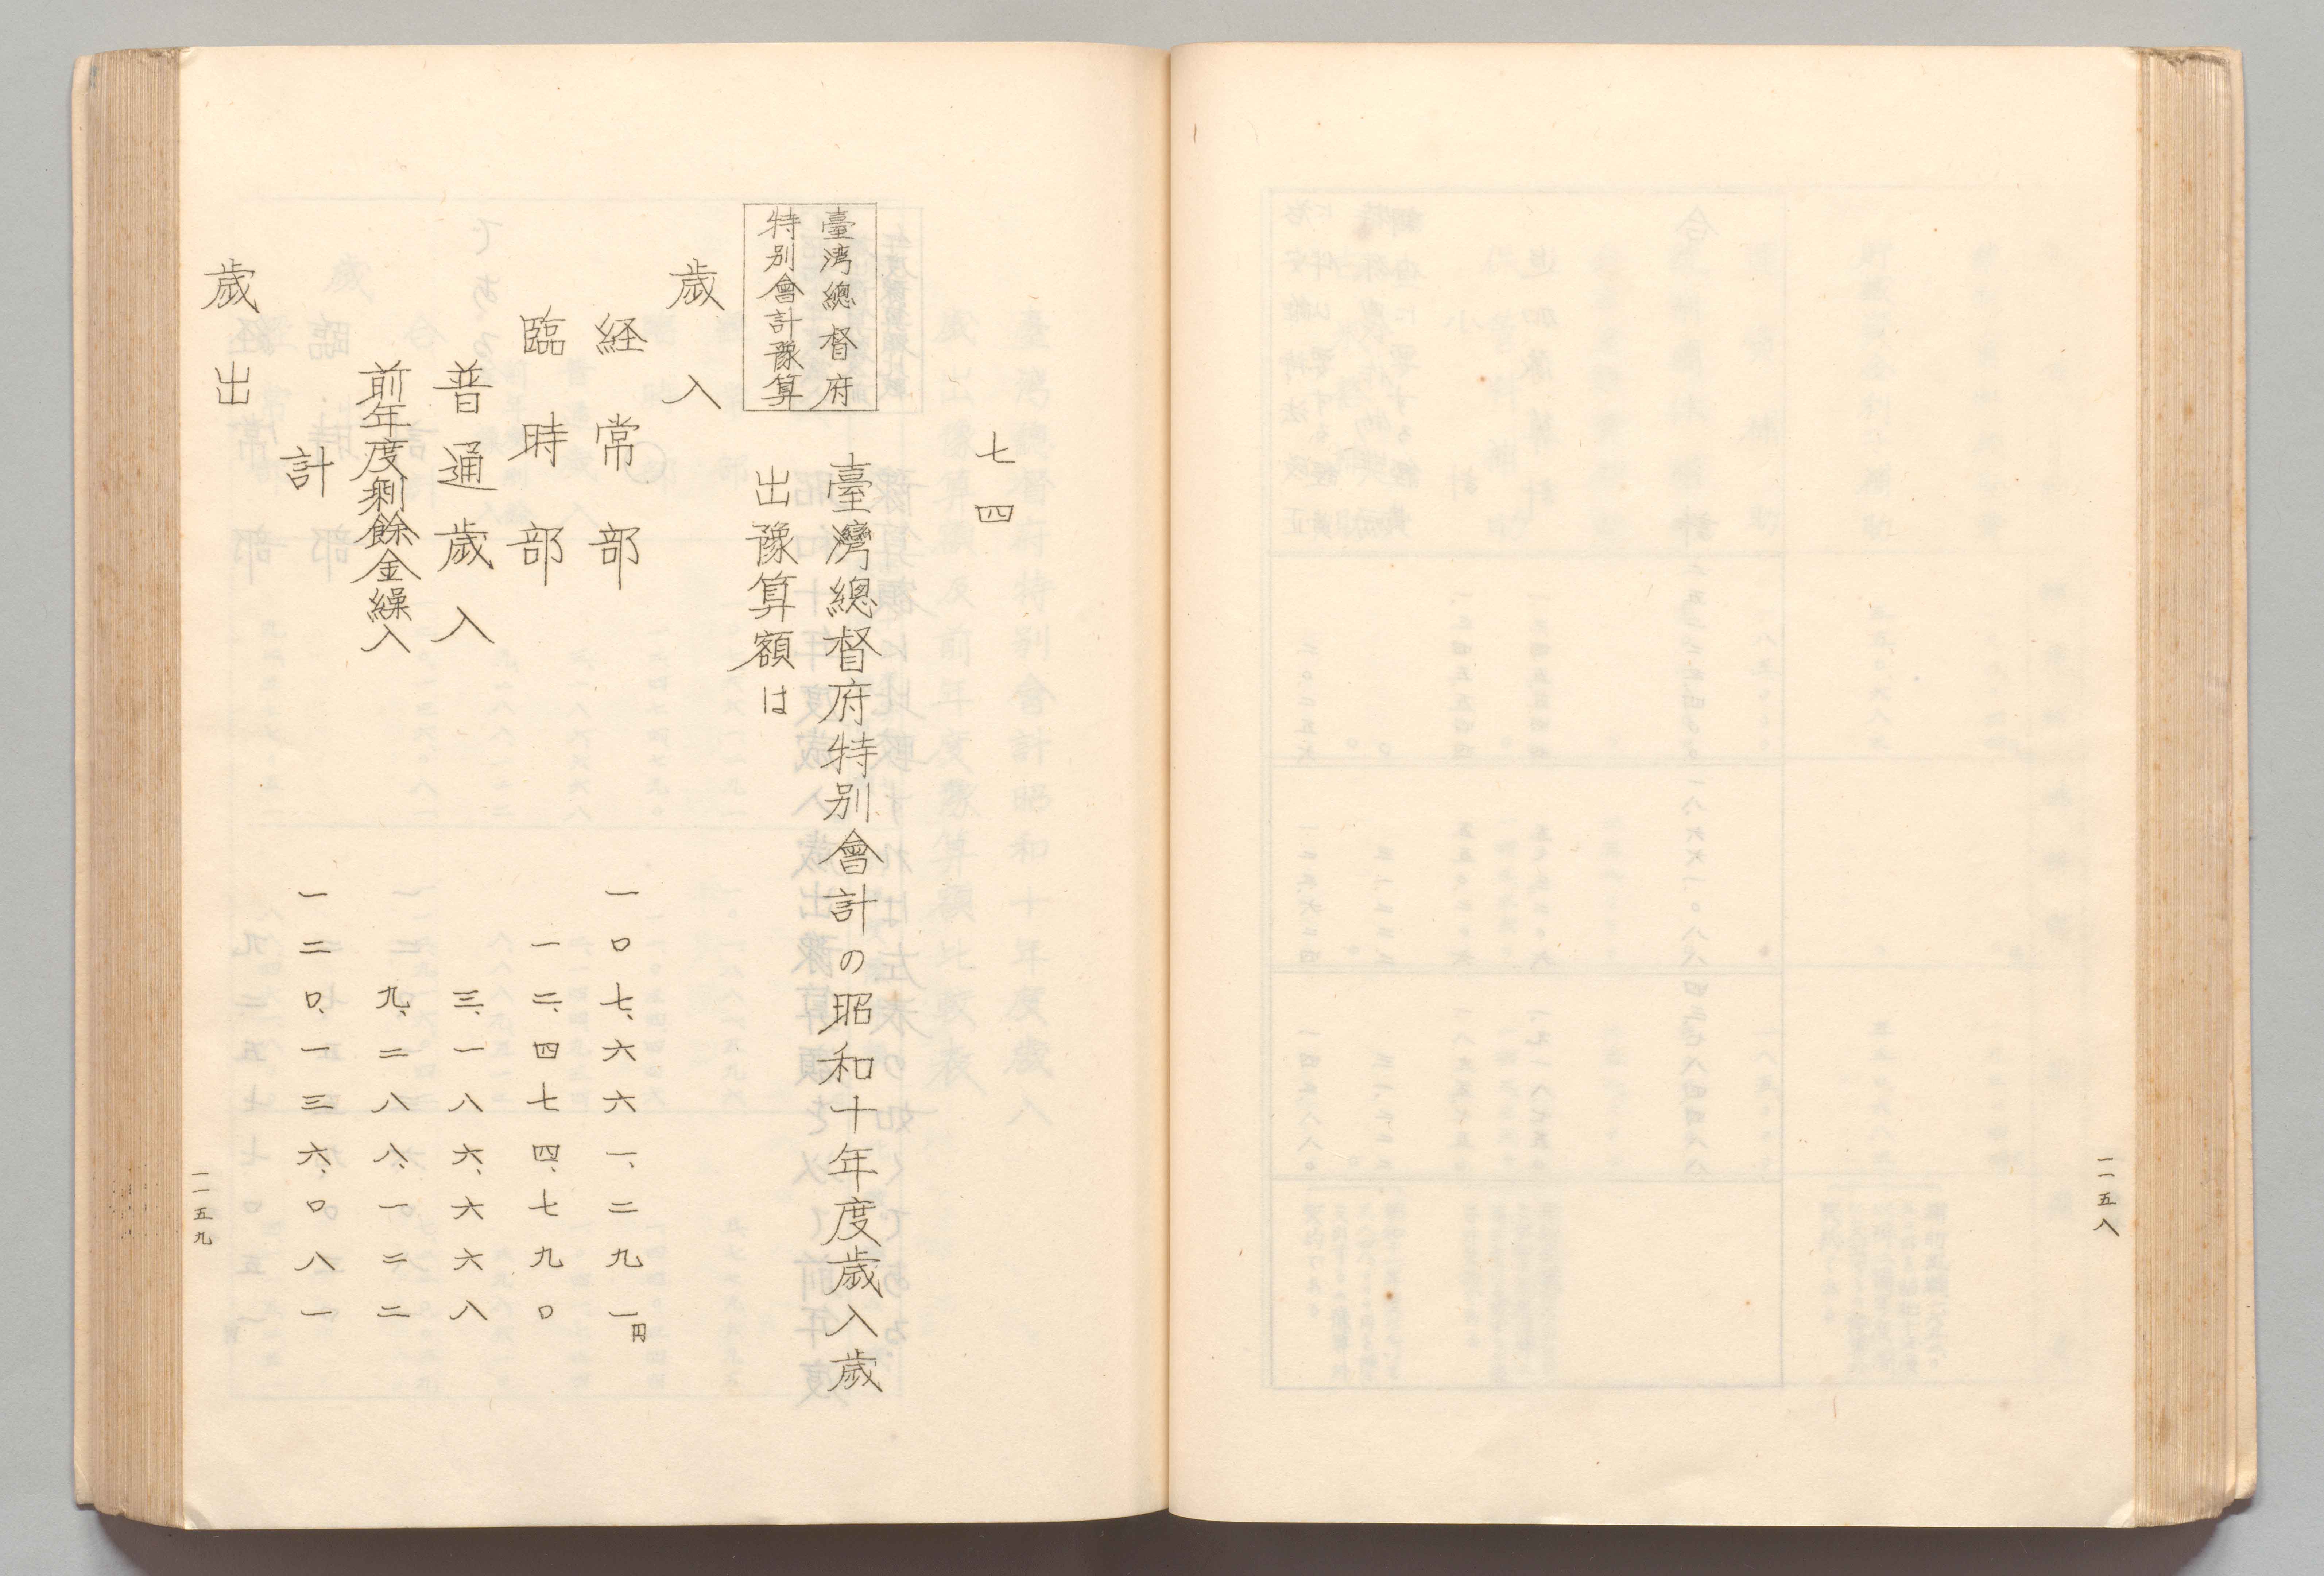 一一五八
七四
臺灣總督府特別會計の昭和十年度歲入歲
出豫算額は
臺湾總督府
特別會計豫算
歲入
経常部 一〇七、六六一、二九一円
臨時部 一二、四七四、七九〇
普通歲入 三、一八六、六六八
前年度剩餘金繰入 九、二八八、一二二
計 一二〇、一三六、〇八一
歲出
一一五九